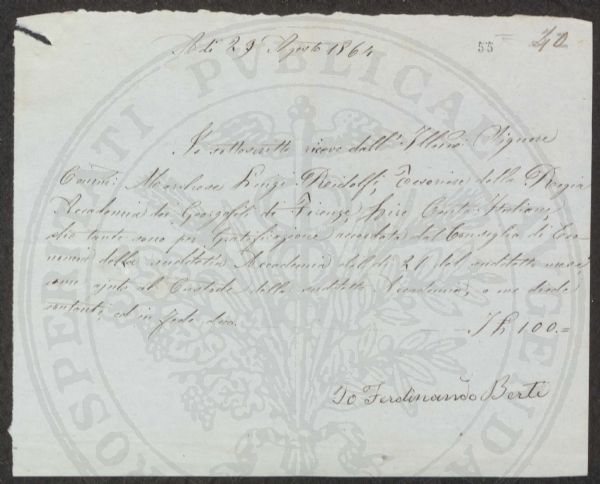 Adì 29 Agosto 1864
55
40
Io sottoscritto ricevo dall' Illmo: Signore
Comm: Marchese Luigi Ridolfi, Tesoriere della Regia
Accademia dei Georgofili di Firenze, Lire Cento Italiane,
che tante sono per gratificazione accordata dal Consiglio di Eco-
nomia della suddetta Accademia del dì 21 del suddetto mese
come ajuto al Custode della suddetta Accademia, a me
contanti, ed in fede dico. £ 100.=
Io Ferdinando Berti
PROSPERITATI PUBLICAE